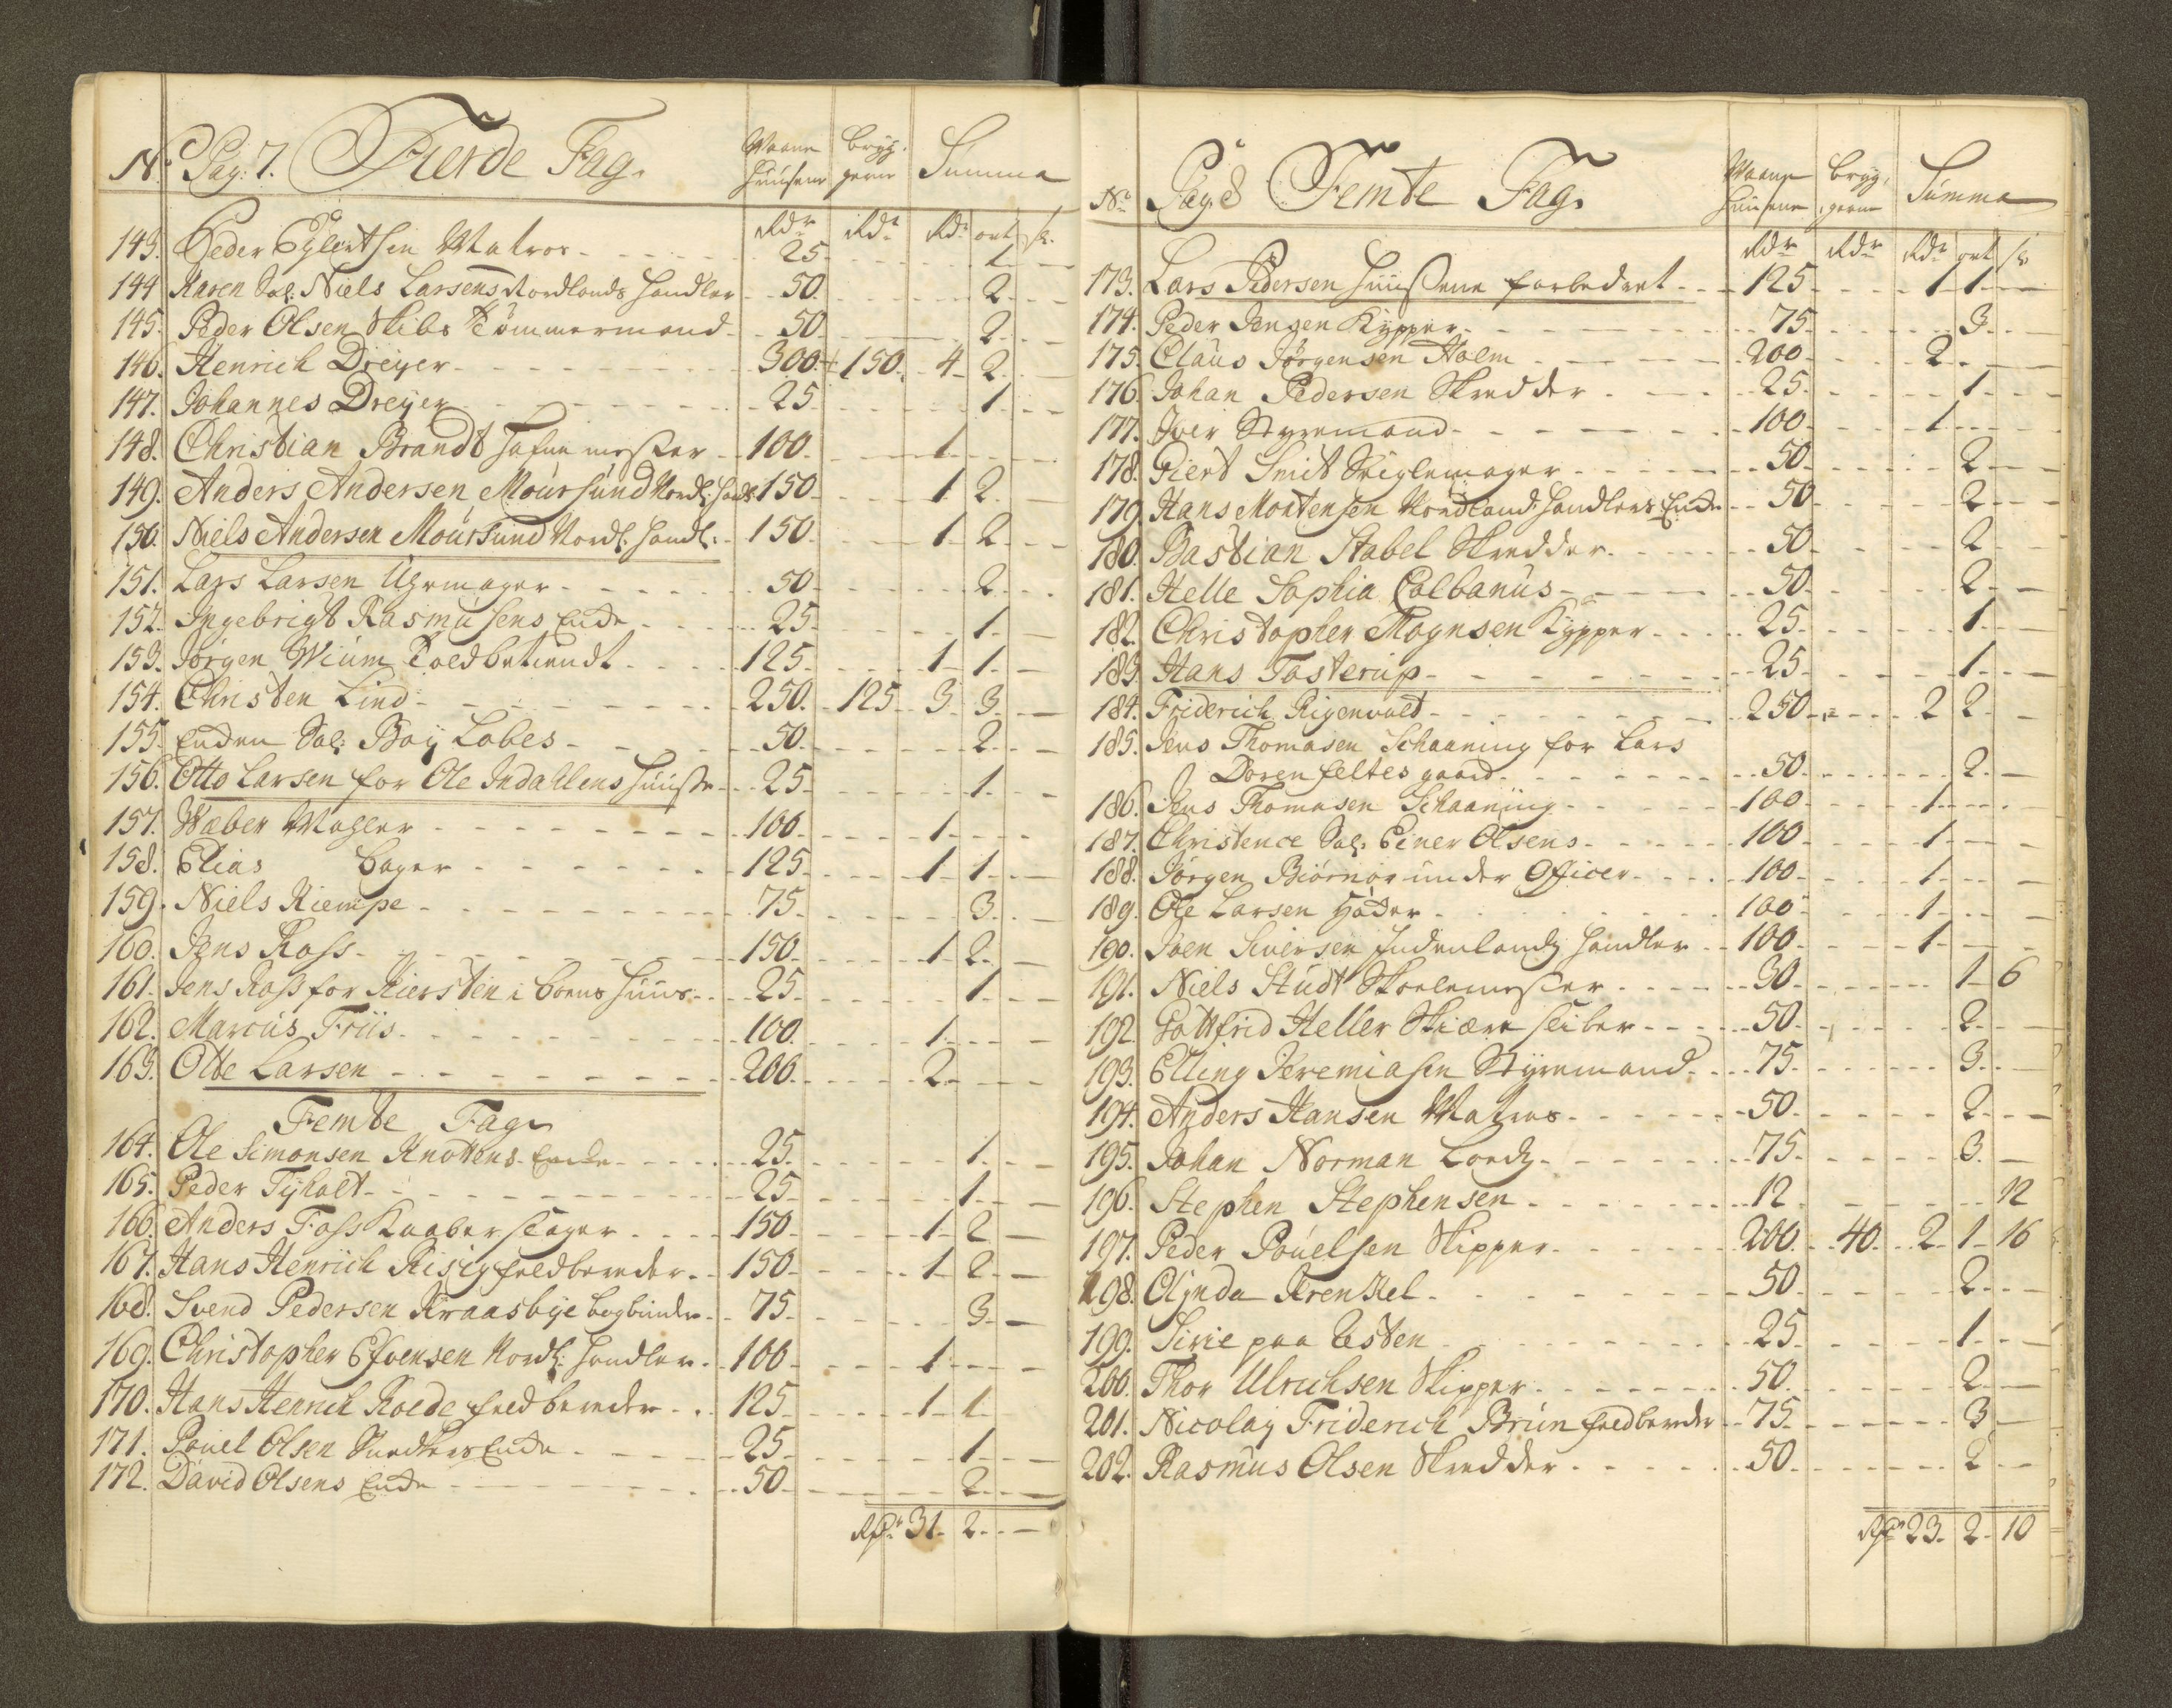 No Pag: 7. Fierde Fag. Waane Huusene Bryggerne Summa
Rdr Rdr Rdr ort s.
143. Peder Eglertsen Matros 25 1
144 Karen Sal: Niels Larsens Nordlands Handler 50 2
145. Peder Olsen Skibs Tømmermand 50 2
146. Henrich Dreyer 300 + 150 4 2
147. Johannes Dreyer 25 1
148. Christian Brandt Hafnemester 100 1
149. Anders Andersen Moursund Nordl: Handl: 150 1 2
150. Niels Andersen Moursund Nordl: Handl: 150 1 2
151. Lars Larsen Uhrmager 50 2
152. Ingebrigt Rasmusens Enche 25 1
153. Jørgen Wium Toldbetiendt 125 1 1
154. Christen Lind 250 125 3 3
155. Enchen Sal: Boy Lobes 50 2
156. Otto Larsen for Ole Indahlens Huuse 25 1
157. Wæber Magler 100 1
158. Elias Bager 125 1 1
159. Niels Kiempe 75 3
160. Jens Ross 150 1 2
161. Jens Ross for Kiersten i Boens Huus 25 1
162. Marcus Friis 100 1
163. Otte Larsen 200 2
Femte Fag
164. Ole Simonsen Knottens Enche 25 1
165. Peder Tyholt 25 1
166. Anders Foss Kaaberslager 150 1 2
167. Hans Henrich Risig feldbereder 150 1 2
168. Svend Pedersen Kraasbye bogbinder 75 3
169. Christopher Esvensen Nordl: Handler 100 1
170. Hans Henrich Roede feldbereder 125 1 1
171. Pouel Olsen Snedkers Enche 25 1
172. David Olsens Enche 50 2
Rdr 31 2
No Pag. 8 Femte Fag. Waane Huusene Bryggerne Summa
Rdr Rdr Rdr ort s
173. Lars Pedersen Huusene forbedret 125 1 1
174. Peder Jensen Kypper 75 3
175. Claus Jørgensen Holm 200 2
176. Johan Pedersen Skredder 25 1
177. Iver Styremand 100 1
178. Giert Smit Seiglemager 50 2
179. Hans Mortensen Nordland: Handlers Enche 50 2
180. Bastian Stabel Skredder 50 2
181. Helle Sophia Colbanus 50 2
182. Christopher Mognsen Kypper 25 1
183. Hans Fosterup 25 1
184. Friderich Rigenvold 250 2 2
185. Jens Thomasen Schaaning for Lars
Dorenfeltes gaard 50 2
186. Jens Thomasen Schaaning 100 1
187. Christence Sal: Einer Olsens 100 1
188. Jørgen Biørnør under Officer 100 1
189. Ole Larsen Høder 100 1
190. Iven Siversen Indenlands Handler 100 1
191. Niels Studt Skoelemester 30 1 6
192. Gottfrid Heller Skiæresliber 50 2
193. Elling Jeremiasen Styremand 75 3
194. Anders Hansen Matros 50 2
195. Johan Norman Lods 75 3
196. Stephen Stephensen 12 12
197. Peder Pouelsen Skipper 200 40 2 1 16
198. Olynda Krenkel 50 2
199. Sirie paa Esten 25 1
200. Thor Ulrichsen Skipper 50 2
201. Nicolay Friderich Brun feldbereder 75 3
202. Rasmus Olsen Skredder 50 2
Rdr 23 2 10